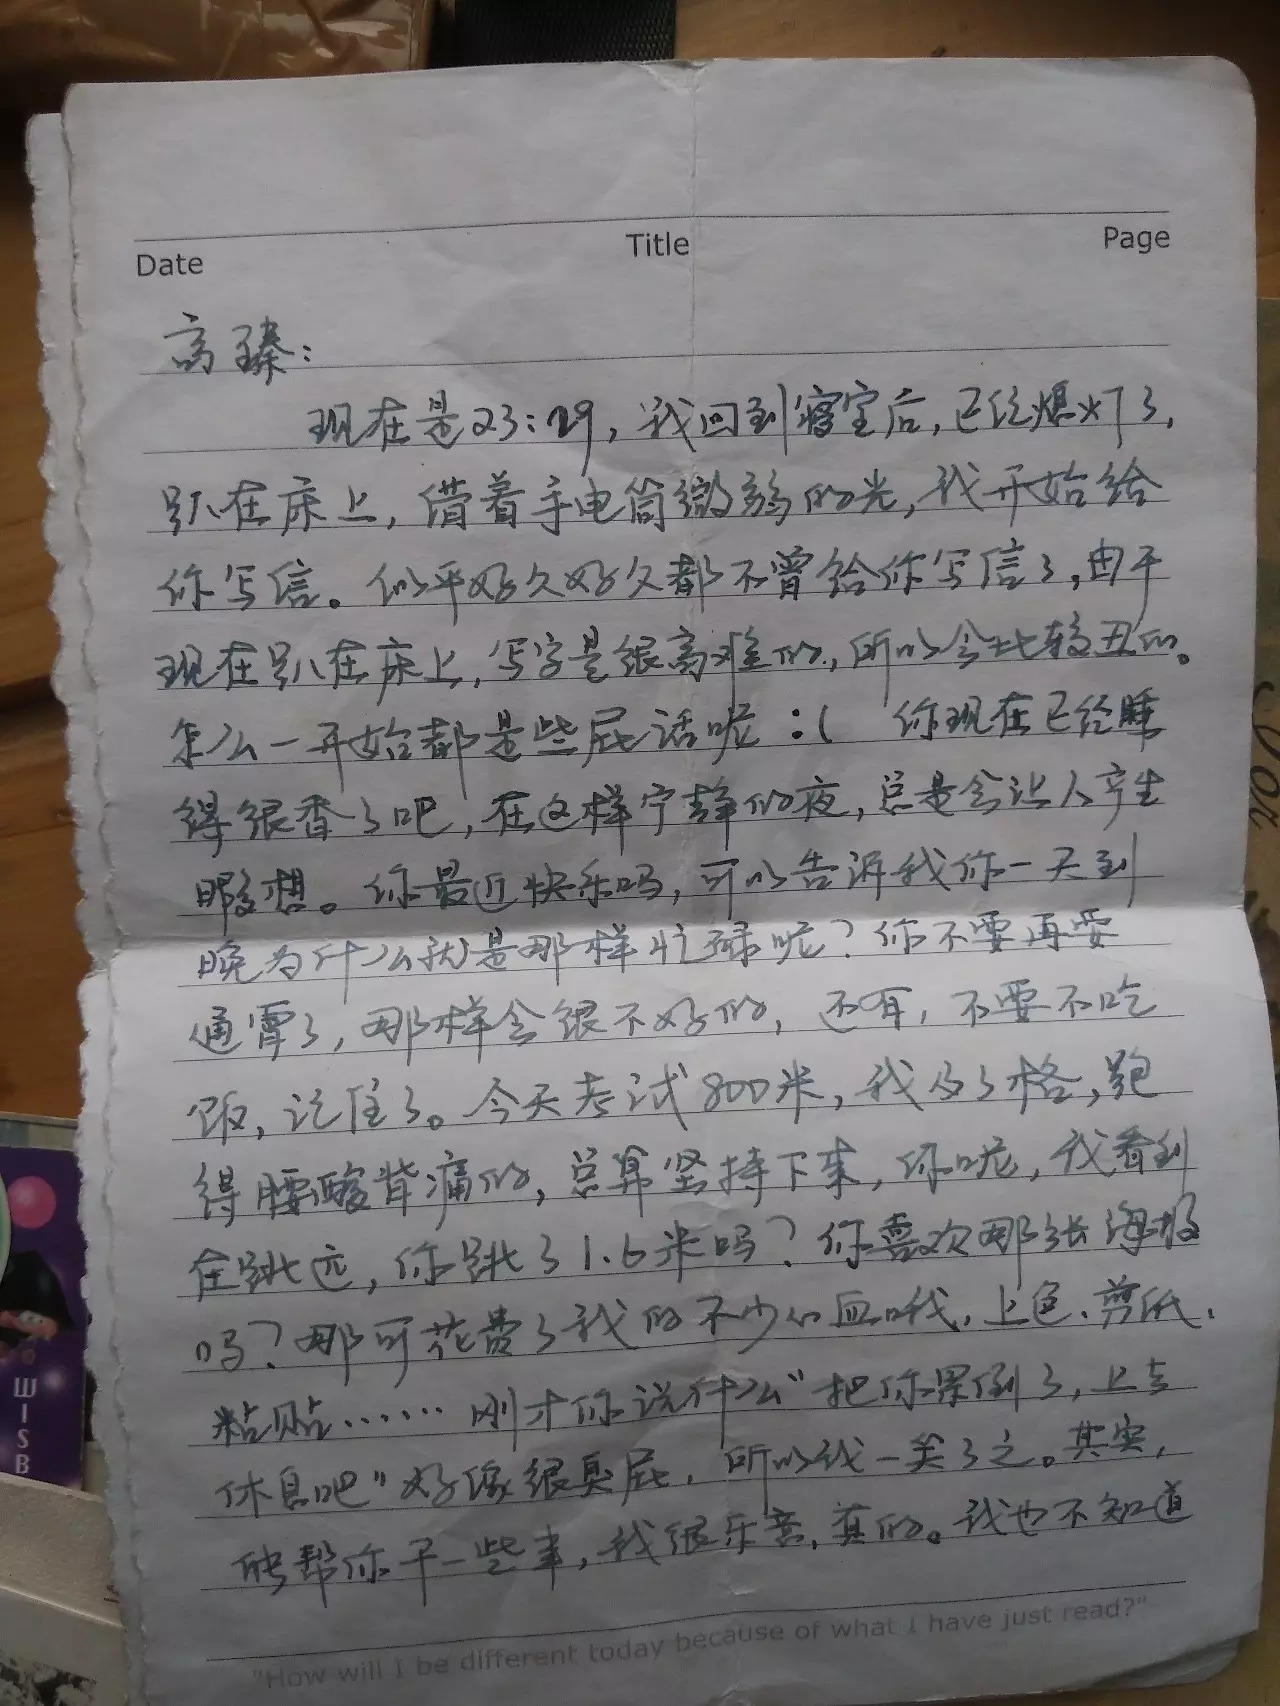 Date Title Page
高臻：
现在是23:29，我回到寝室后，已经熄灯了，
趴在床上，借着手电筒微弱的光，我开始给
你写信。似乎好久好久都不曾给你写信了，由于
现在趴在床上，写字是很高难的，所以会比较丑的。
怎么一开始都是些屁话呢 :( 你现在已经睡
得很香了吧，在这样宁静的夜，总是会让人产生
暇想。你最近快乐吗，可以告诉我你一天到
晚为什么就是那样忙碌呢？你不要再耍
通霄了，那样会很不好的，还有，不要不吃
饭，记住了。今天考试800米，我及了格，跑
得腰酸背痛的，总算坚持下来，你呢，我看到
在跳远，你跳了1.6米吗？你喜欢那张海报
吗？那可花费了我的不少心血哦，上色、剪纸、
粘贴……刚才你说什么“把你累倒了，上去
休息吧”好像很臭屁，所以我一笑了之。其实，
能帮你干一些事，我很乐意，真的。我也不知道
"How will I be different today because of what I have just read?"
WISB